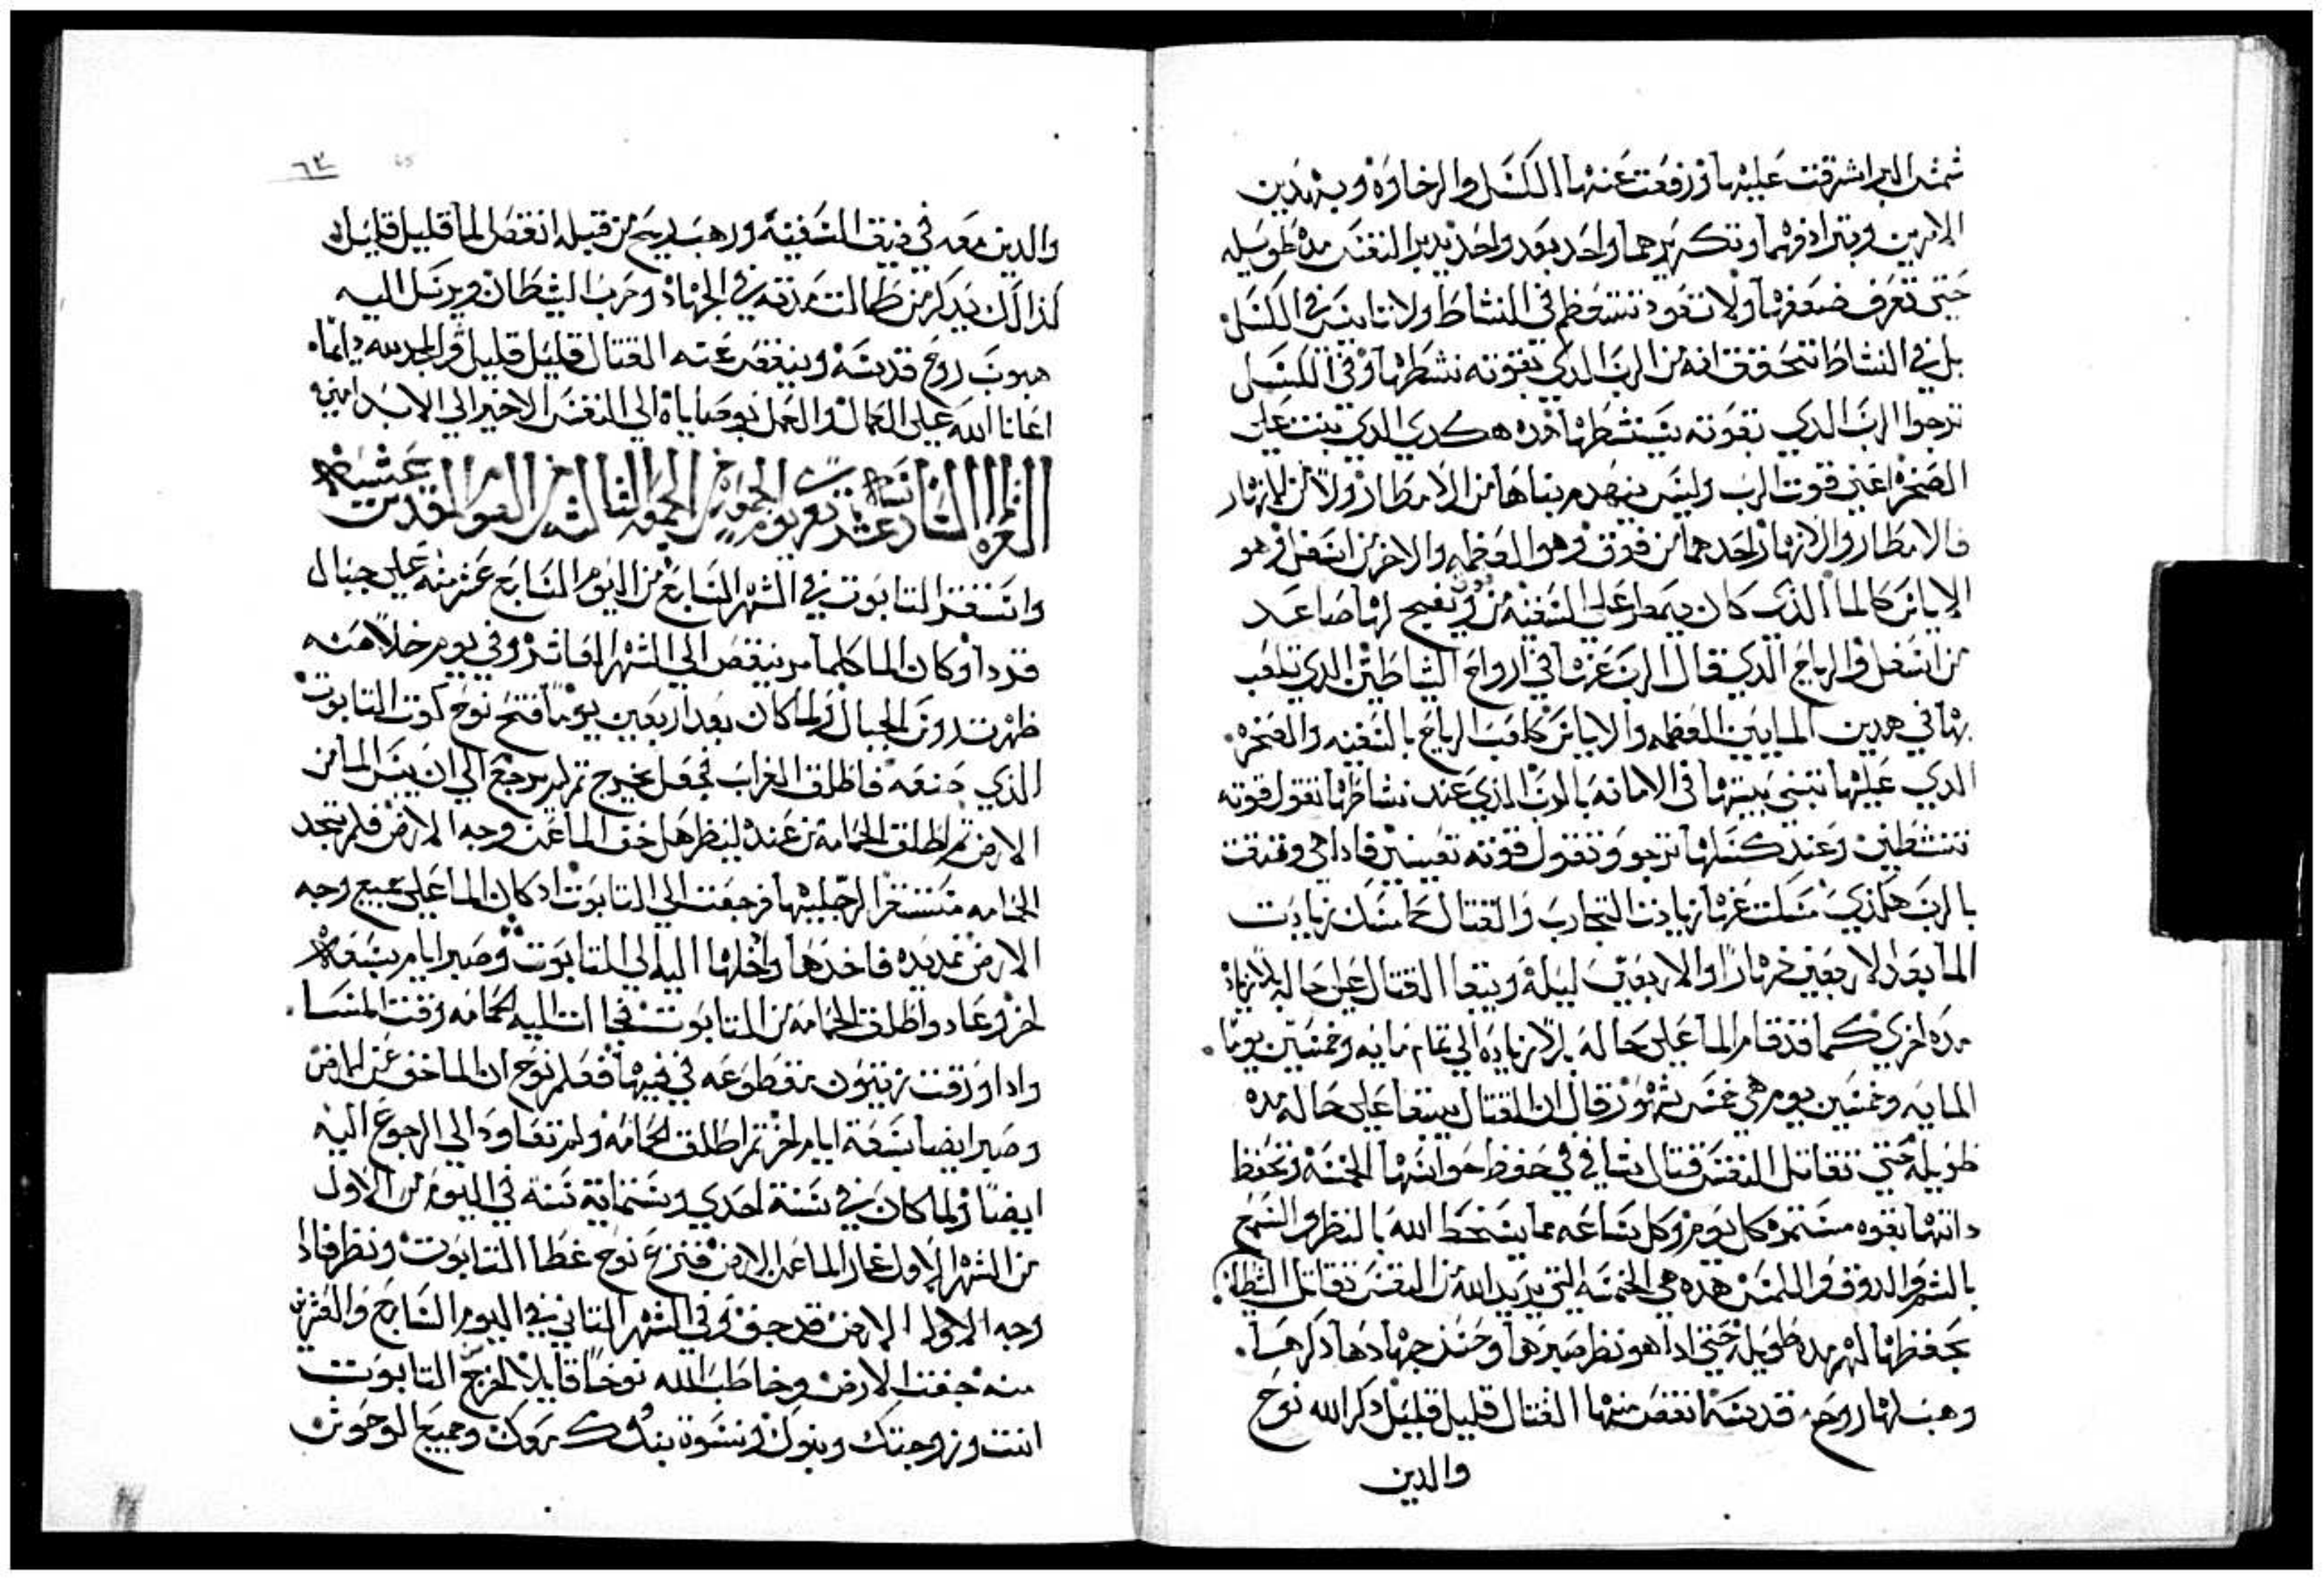 شمس البر اشرقت عليها ورفعت عنها الكسل والرخاوه وبهدين
الامرين وبترادفهما وتكريرهما واحد بعد واحد يدير النفس مده طويله
حتى تعرف ضعفها ولا تعود تستعظم في النشاط ولا تايس في الكسل
بل في النشاط تتحقق انه من الرب الدي بقوته نشطها وفي الكسل
ترجوا الرب الدي بقوته يستنشطها هده هكدي الدي بنيت على
الصخره اعني قوت الرب وليس ينهدم بناها من الامطار ولا من الانهار
فالامطار والانهار احدهما من فوق وهو العظمه والاخر من اسفل وهو
الاياس كالما الذي كان يمطر على السفينه من فوق ويفيح لها صاعد
من اسفل والرياح الدي قال الرب عنها في ارواح الشاطين الدي تلعب
بها في هدين المايين العظمه والاياس كلعب الرياح بالسفينه والصخره
الدي عليها تبني بيتها في الامانه بالرب الدي عند نشاطها تقول قوته
تنشطين وعند كسلها ترجو وتقول قوته تعينين فادا هي وثقت
بالرب هكدي مسكت عنها زيادت التجارب والقتال كما مسك زيادت
الما بعد الاربعين نهارا والاربعين ليله ويبقا القتال على حاله بلا زياده
مده اخري كما قد قام الما على حاله بلا زياده الى تمام مايه وخمسين يوما
المايه وخمسين يوم هي خمس شهور قال ان القتال يبقا على حاله مده
طويله حتي تقاتل النفس قتال شافي في حفظ حواسها الخمسه وتحفظ
داتها بقوه مستمره كل يوم وكل ساعه مما يسخط الله بالنظر والسمع
بالشم والدوق واللمس هده هي الخمسه التي يريد الله من النفس تقاتل الشيطان
بحفظها لهم مده طويله حتي ادا هو نظر صبرها وحسن جهادها دكرها
وهب لها روح قدسه انقص منها القتال قليل قليل دكر الله نوح
والدين
٦٣
والدين معه في ضيق السفينه ورهب ريح من قبله انقص الما قليل قليل
كذالك يدكر من طالت مدته في الجهاد وحرب الشطان ويرسل اليه
هبوب روح قدسه وينقص عنه القتال قليل قليل والمجد لله دايما
اعانا الله على العمال والعمل بوصاياه الى النفس الاخير الى الابد امين
القراه السادسه عشر تقرى يوم الجمعه من الجمعه الثالثه من الصوم المقدس
واستقر التابوت في الشهر السابع من اليوم السابع عشر منه على جبال
قردا وكان الما كلما مر ينقص الى الشهر العاشر وفي يوم خلا منه
ظهرت روس الجبال ولما كان بعد اربعين يوما فتح نوح كوت التابوت
الذي صنعه فاطلق الغراب فجعل يخرج ثم لم يرجع الى ان يبس الما من
الارض ثم اطلق الحمامه من عنده لينظر هل خف الما عن وجه الارض فلم تجد
الحمامه مستقرا لرجليها فرجعت الى التابوت اد كان الما على جميع وجه
الارض فمد يده فاخدها وادخلها اليه الى التابوت وصبر ايام سبعه
اخر وعاد واطلق الحمامه من التابوت فجاات اليه الحمامه وقت المسا
وادا ورقت زيتون مقطوعه في فيها فعلم نوح ان الما خف عن الارض
وصبر ايضا سبعة ايام اخر ثم اطلق الحمامه ولم تعاود الى الرجوع اليه
ايضا ولما كان في سنة احدي وستماية سنه في اليوم من الاول
من الشهر الاول غار الما عن الارض فنزع نوح غطا التابوت ونظر فادا
وجه الاولا الارض قد جف وفي الشهر التاني في اليوم السابع والعشرين
منه جفت الارض وخاطب الله نوحا قايلا اخرج من التابوت
انت وزوجتك وبنوك ونسوة بنوك معك وجميع الوحوش